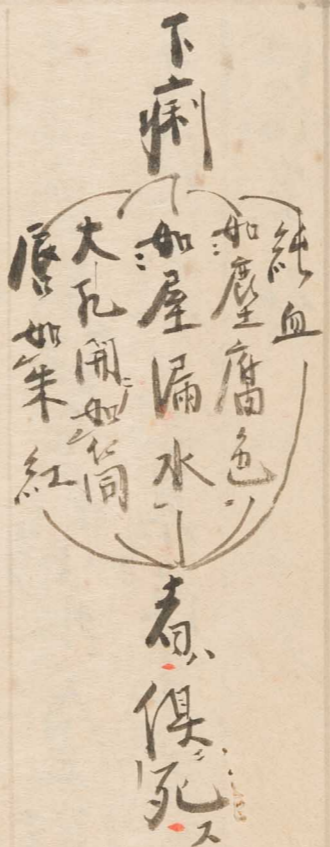 下痢
純血
如塵腐色
如屋漏水
大孔開如筒
唇如朱紅
者ハ
倶ニ死ス